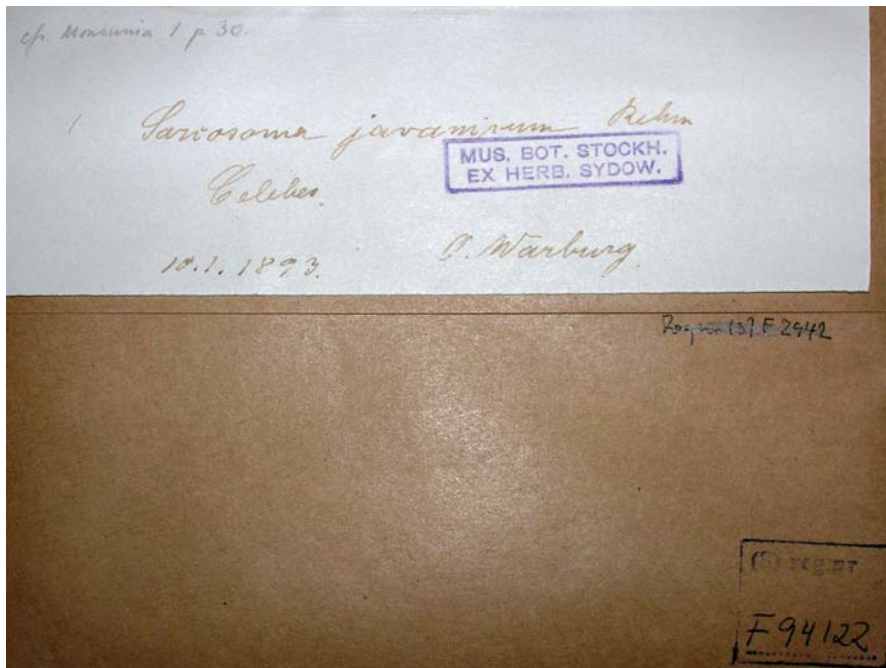 cfr. Monsunia 1 p 30.
Sarcosoma javanicum Rehm
MUS. BOT. STOCKH.
EX HERB. SYDOW.
Celebes.
10.1.1893. O. Warburg
F 2942
(S) reg.nr
F94122